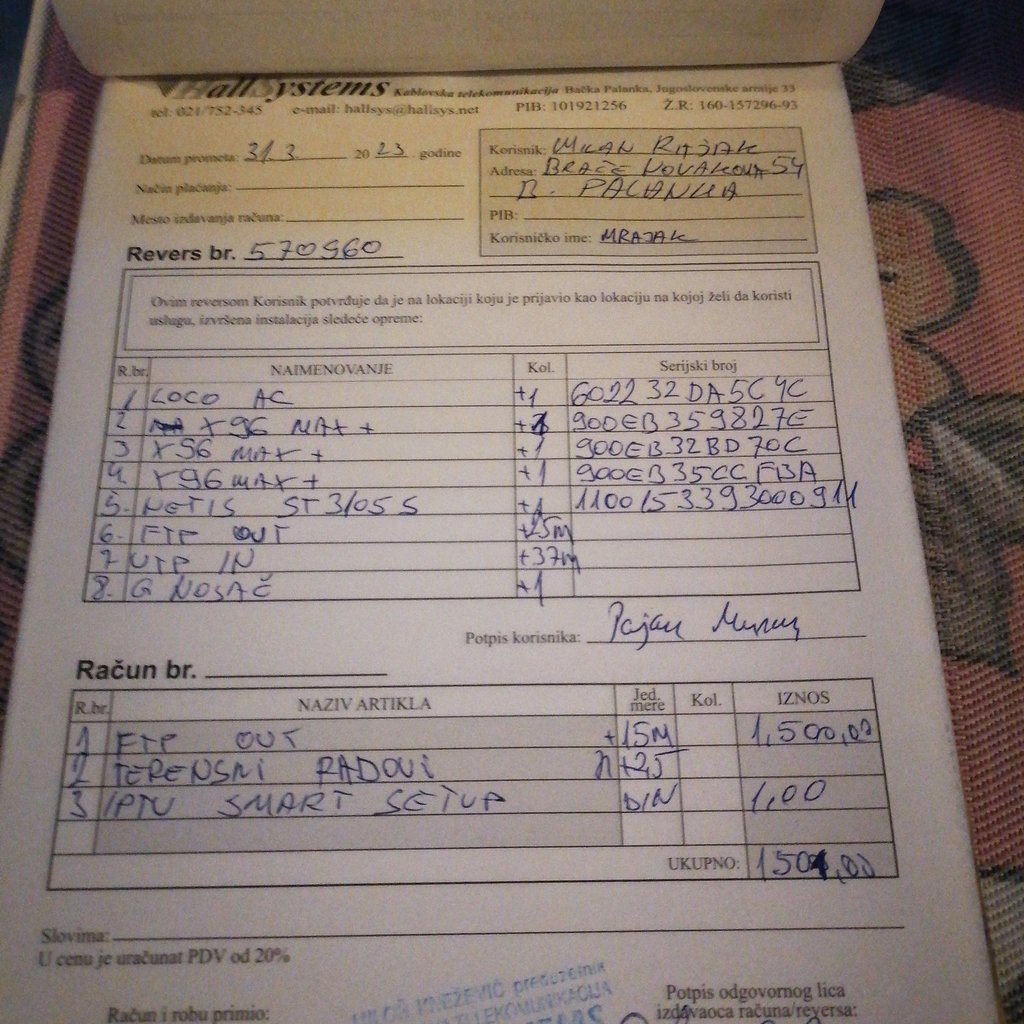 HallSystems Kablovska telekomunikacija Bačka Palanka, Jugoslovenske armije 33
tel: 021/752-345 e-mail: hallsys@hallsys.net PIB: 101921256 Ž.R: 160-157296-93
Datum prometa: 31.3 20 23. godine
Način plaćanja:
Mesto izdavanja računa:
Korisnik: MILAN RAJAK
Adresa: BRAĆE NOVAKOVA 54
B. PALANKA
PIB:
Korisničko ime: MRAJAK
Revers br. 570960
Ovim reversom Korisnik potvrđuje da je na lokaciji koju je prijavio kao lokaciju na kojoj želi da koristi
uslugu, izvršena instalacija sledeće opreme:
R.br. NAIMENOVANJE Kol. Serijski broj
1 LOCO AC +1 602232DA5C4C
2 X96 MAX + +1 900EB359827E
3 X96 MAX + +1 900EB32BD70C
4. X96 MAX + +1 900EB35CCFBA
5. NETIS ST3105S +1
6. FTP OUT +25m
7 UTP IN +37m
8. G NOSAČ +1
Potpis korisnika: Rajak Milan
Račun br.
R.br. NAZIV ARTIKLA Jed. mere Kol. IZNOS
1 FTP OUT +15M 1,500,00
2 TERENSKI RADOVI +25
3 IPTV SMART SETUP DIN 1,00
UKUPNO: 1501,00
Slovima:
U cenu je uračunat PDV od 20%
Račun i robu primio:
MILOŠ KNEŽEVIĆ preduzetnik
TELEKOMUNIKACIJA
Potpis odgovornog lica
izdavaoca računa/reversa: